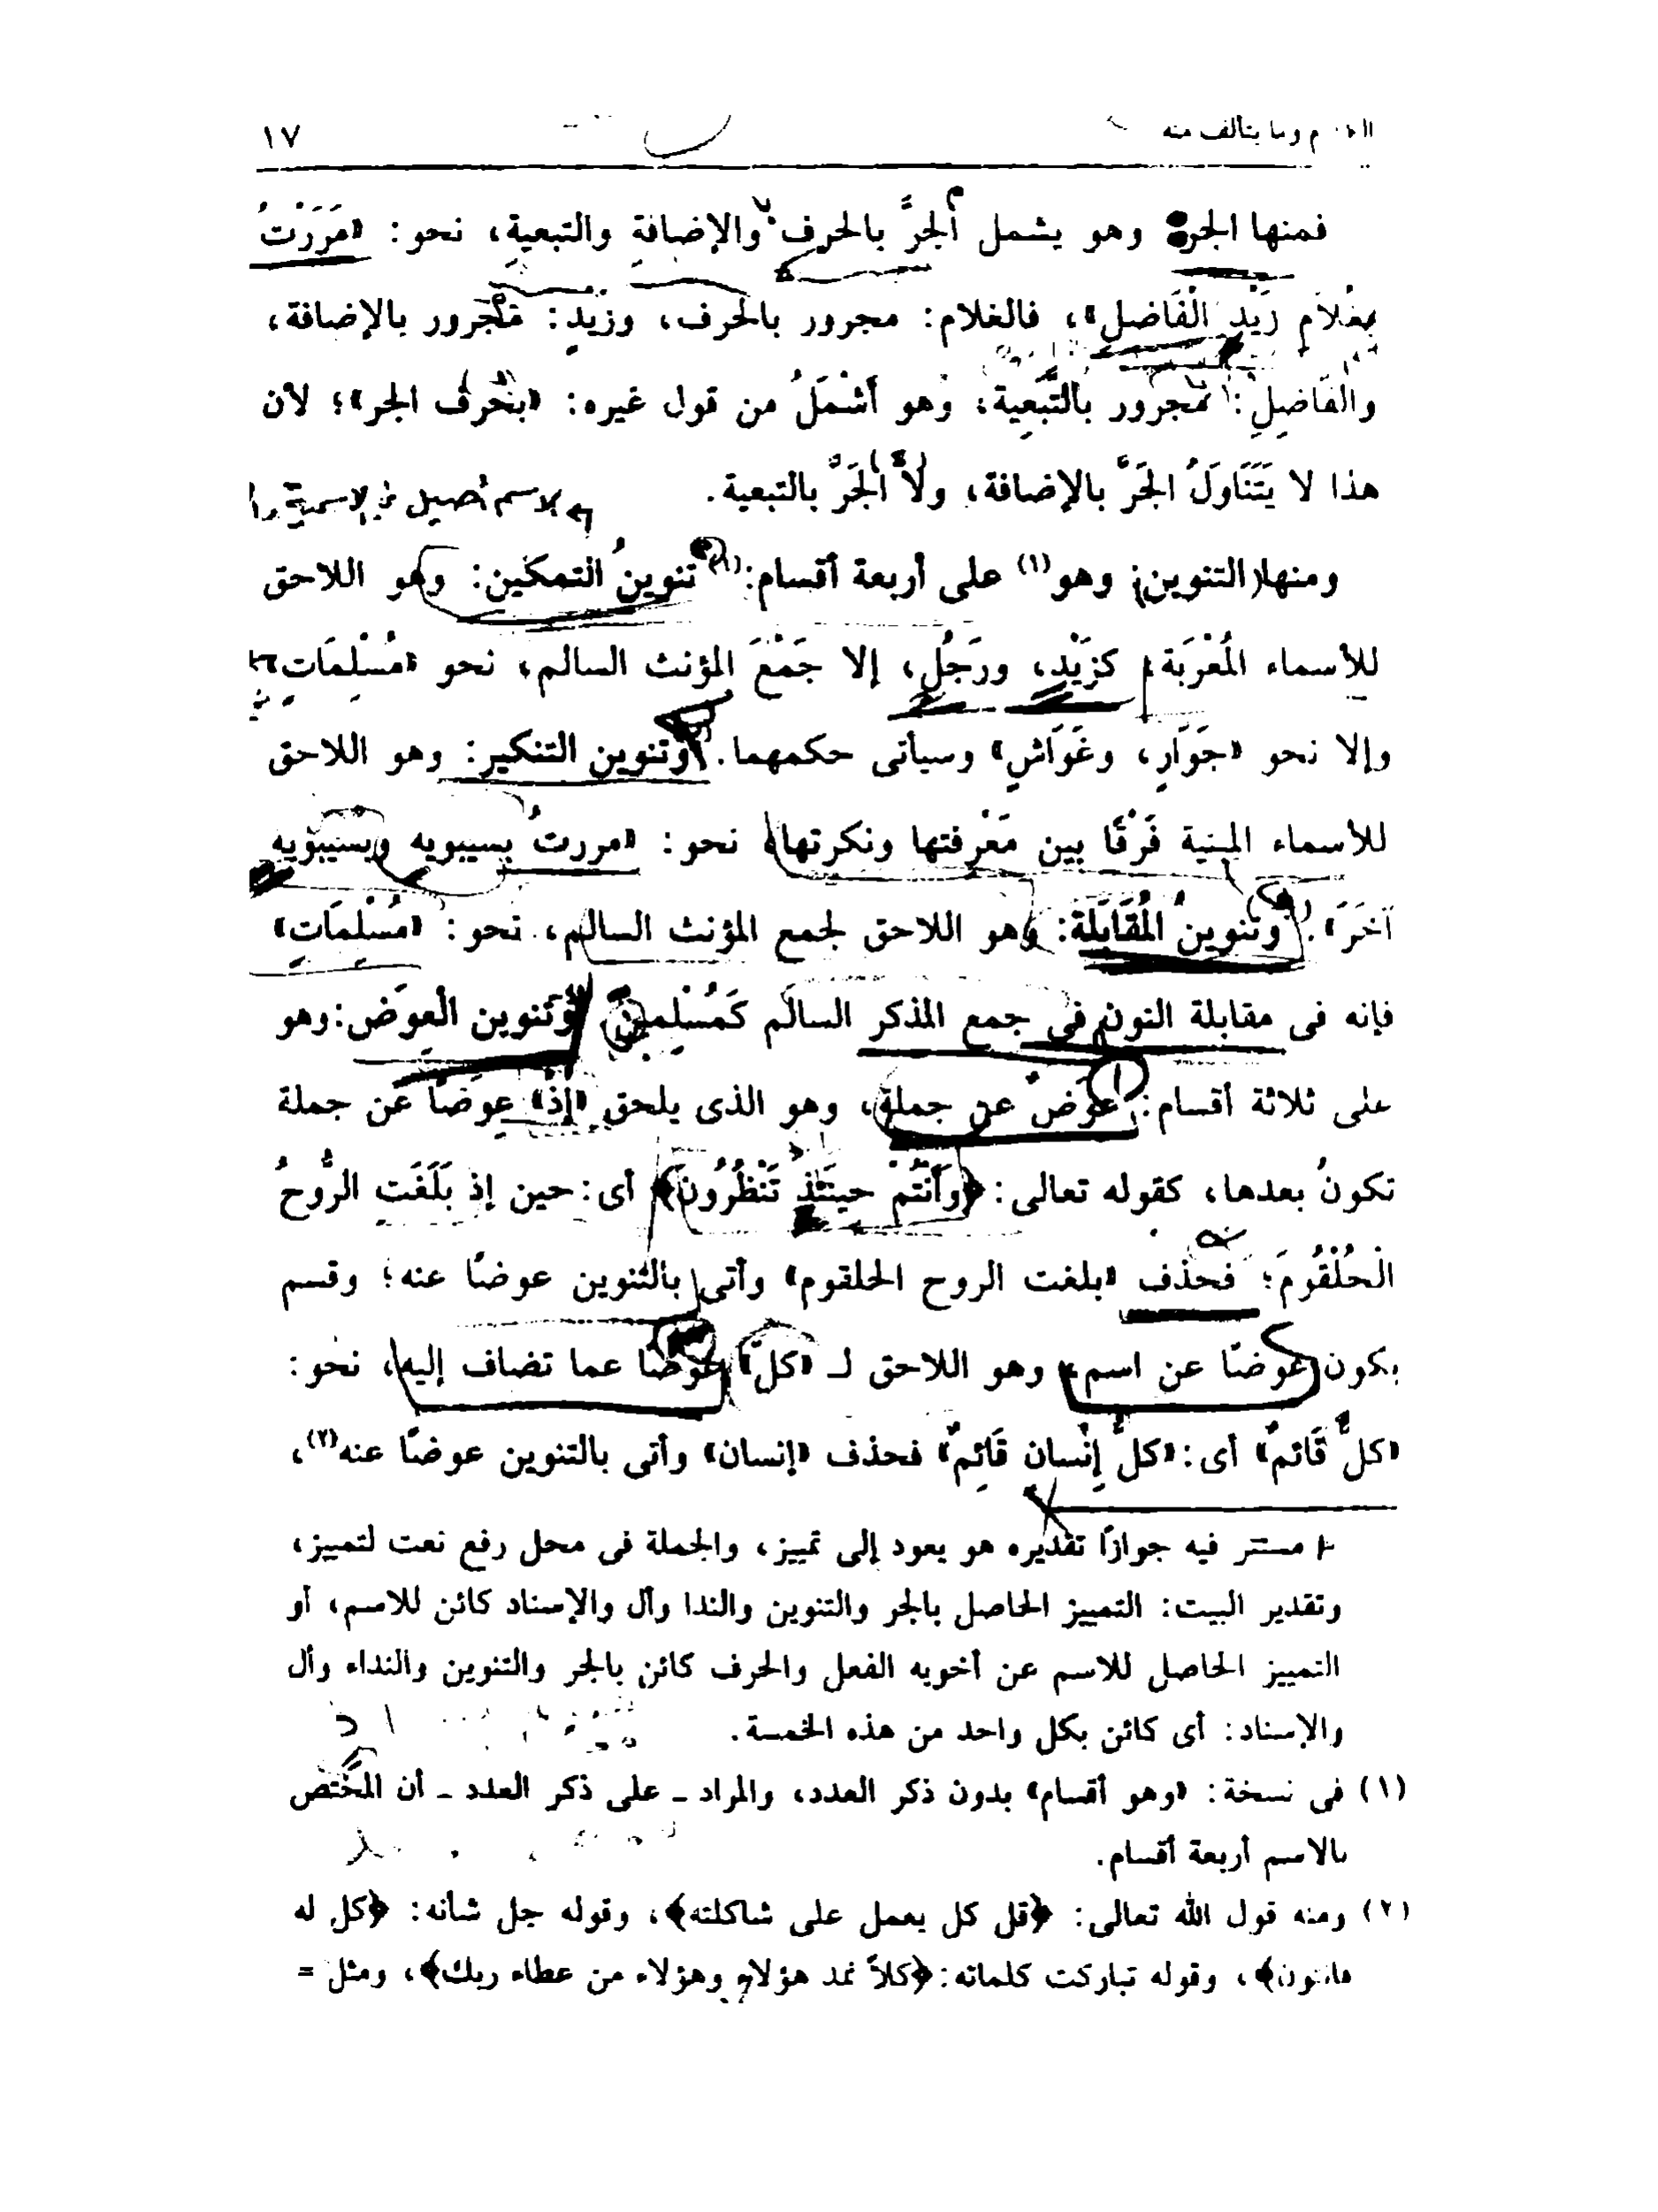 الكلام وما يتألف منه ١٧
فمنها الجر؛ وهو يشمل الجرَّ بالحرف والإضافةِ والتبعيةِ، نحو: «مَرَرْتُ
بِغُلاَمِ زَيْدٍ الْفَاضِلِ»، فالغلام: مجرور بالحرف، وزَيْدٍ: مَجْرور بالإضافة،
والفَاضِلِ: مجرور بالتَّبَعِية، وهو أشْمَلُ من قول غيره: «بحرف الجر»؛ لأن
هذا لا يَتَنَاوَلُ الجَرَّ بالإضافة، ولا الجَرَّ بالتبعية.
الاسم أصيل في الاسمية
ومنها التنوين؛ وهو(١) على أربعة أقسام: تنوينُ التمكين: وهو اللاحق
للأسماء المُعْرَبَة؛ كزَيْدٍ، ورَجُلٍ، إلا جَمْعَ المؤنث السالم، نحو «مُسْلِمَاتٍ»
وإلا نحو «جَوَارٍ، وغَوَاشٍ» وسيأتى حكمهما. وتنوين التنكير: وهو اللاحق
للأسماء المبنية فَرْقًا بين مَعْرفتها ونكرتها، نحو: «مررتُ بسيبويه وبسيبَويهٍ
آخَرَ». وتنوينُ المُقَابَلَة: وهو اللاحق لجمع المؤنث السالم، نحو: «مُسْلِمَاتٍ»
فإنه فى مقابلة النون فى جمع المذكر السالم كَمُسْلِمِينَ، وتنوين العِوَض: وهو
على ثلاثة أقسام: عِوَضٌ عن جملة، وهو الذى يلحق «إذْ» عِوَضًا عن جملة
تكونُ بعدها، كقوله تعالى: ﴿وَأَنْتُمْ حِينَئِذٍ تَنْظُرُونَ﴾ أى: حين إذ بَلَغَتِ الرُّوحُ
الْحُلْقُومَ؛ فحذف «بلغت الروح الحلقوم» وأتى بالتنوين عوضًا عنه؛ وقسم
يكون عوضًا عن اسم، وهو اللاحق لـ «كلّ» عوضًا عما تضاف إليه، نحو:
«كلٌّ قَائمٌ» أى: «كلُّ إِنْسانٍ قَائِمٌ» فحذف «إنسان» وأتى بالتنوين عوضًا عنه(٢)،
= مستتر فيه جوازًا تقديره هو يعود إلى تمييز، والجملة فى محل رفع نعت لتمييز،
وتقدير البيت: التمييز الحاصل بالجر والتنوين والندا وأل والإسناد كائن للاسم، أو
التمييز الحاصل للاسم عن أخويه الفعل والحرف كائن بالجر والتنوين والنداء وأل
والإسناد: أى كائن بكل واحد من هذه الخمسة.
(١) فى نسخة: «وهو أقسام» بدون ذكر العدد، والمراد ـ على ذكر العدد ـ أن المختص
بالاسم أربعة أقسام.
(٢) ومنه قول الله تعالى: ﴿قل كل يعمل على شاكلته﴾، وقوله جل شأنه: ﴿كل له
قانتون﴾، وقوله تباركت كلماته: ﴿كلاً نمد هؤلاء وهؤلاء من عطاء ربك﴾، ومثل =